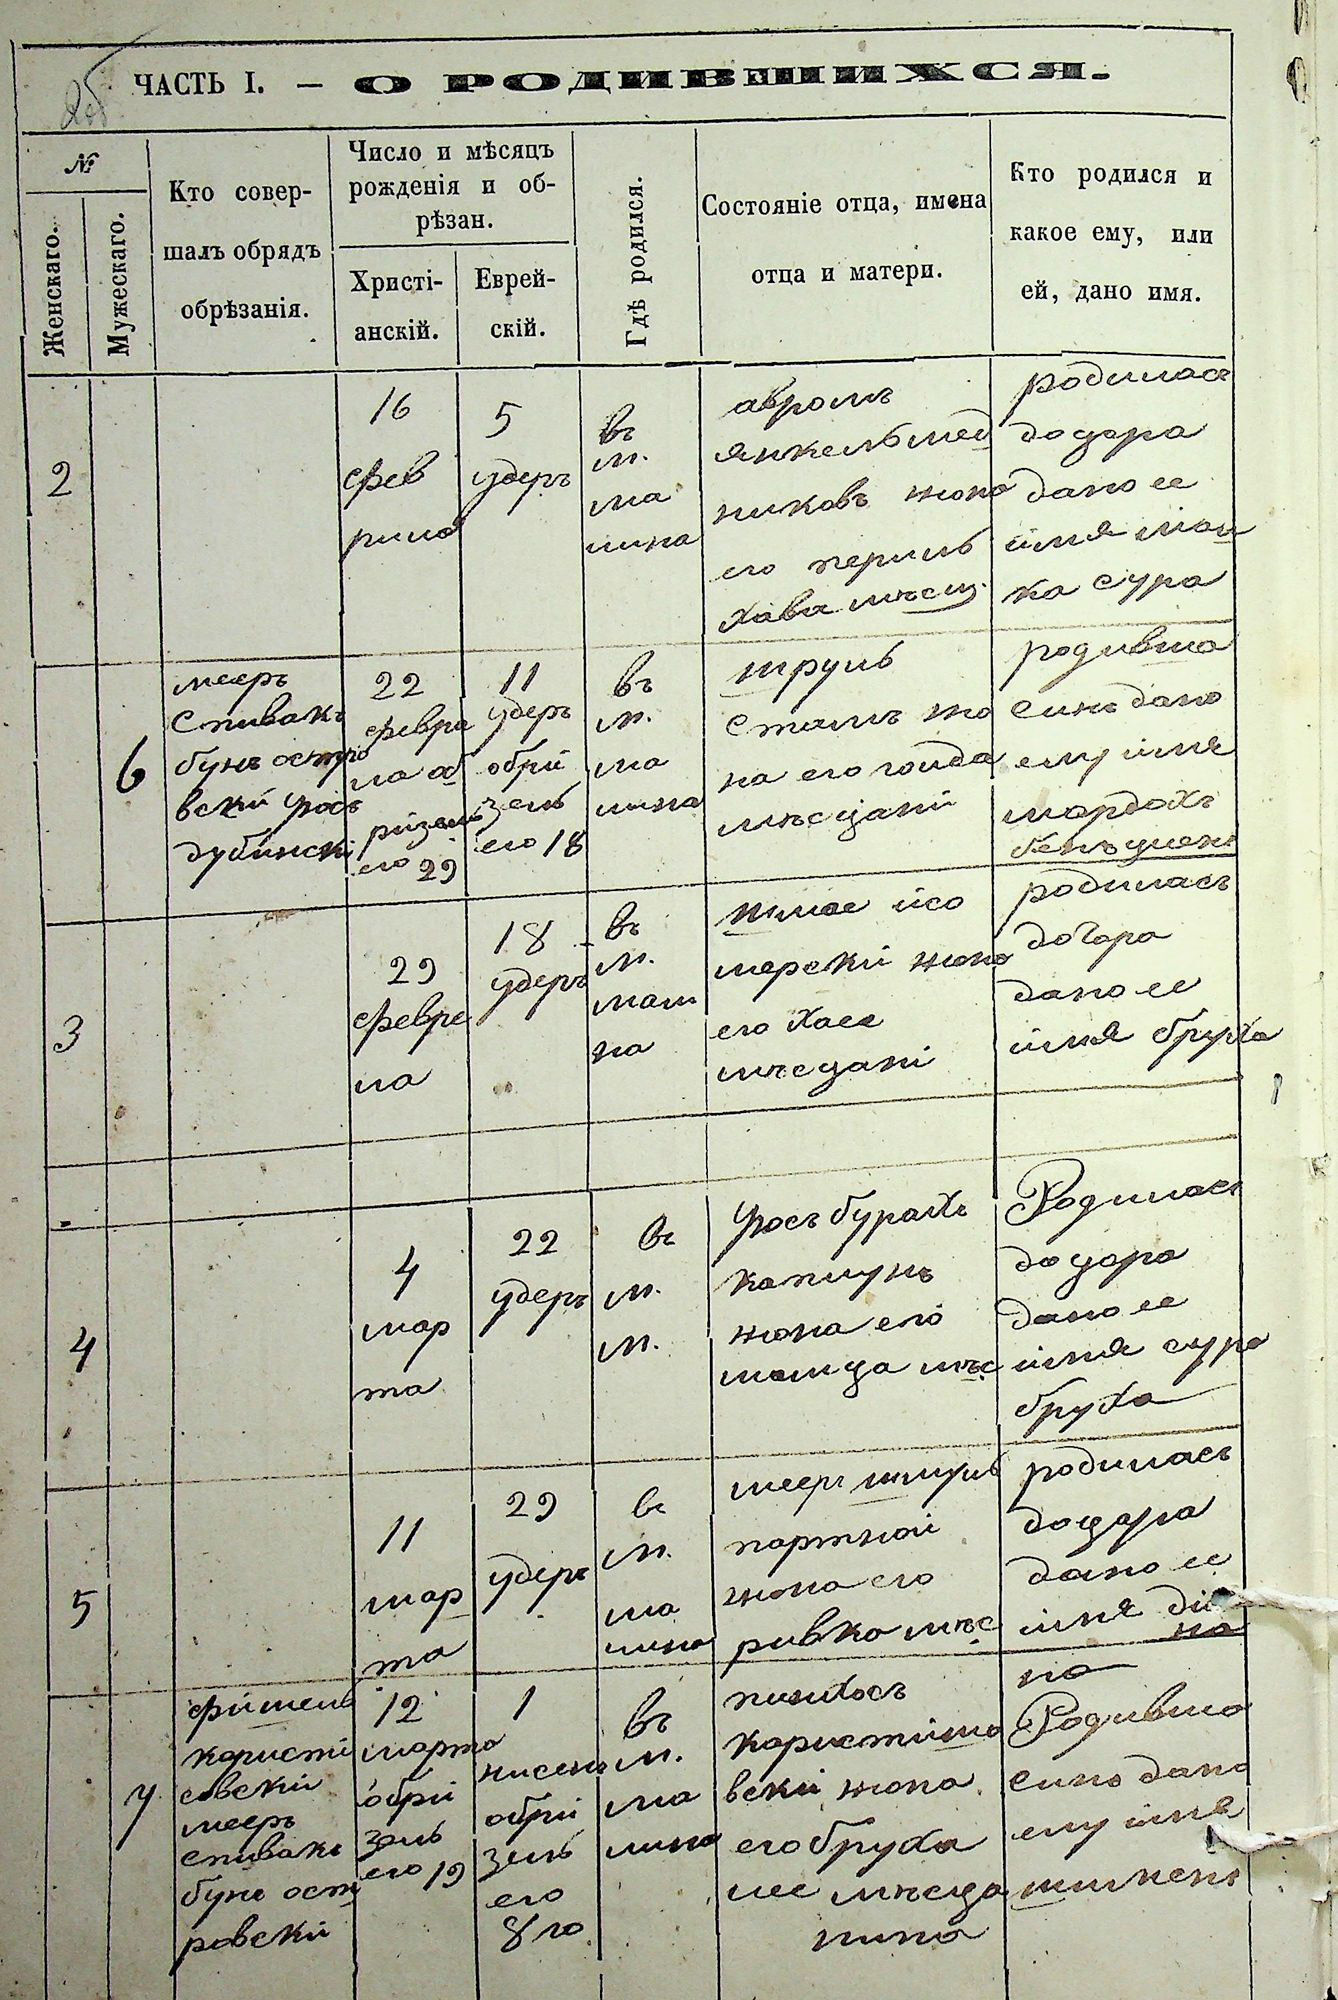 ЧАСТЬ I. — О РОДИВШИХСЯ.
№
Женскаго.
Мужескаго.
Кто совер-
шалъ обрядъ
обрѣзанія.
Число и мѣсяцъ
рожденія и об-
рѣзан.
Христі-
анскій.
Еврей-
скій.
Гдѣ родился.
Состояніе отца, имена
отца и матери.
Кто родился и
какое ему, или
ей, дано имя.
2
16
фев
рила
5
удеръ
въ
м.
ма
шина
авромъ
янкель мед
никовъ жона
его перил
хава мѣсщ.
родилась
доцера
дано ее
имя маш
ка сура
6
мееръ
спивакъ
бунъ остро
вскй
дубинскі
22
февра
ла об
ризань
его 29
11
удеръ
обрй
зень
его 18
въ
м.
ма
шина
сруль
жо
на его голда
мѣсцанй
родивша
синъ дано
ему имя
мордохъ
3
29
февре
ла
18
удеръ
въ
м.
маш
на
мерскй жона
его хаее
мѣсцані
родилась
дочера
дано ее
имя бруха
4
4
мар
та
22
удеръ
въ
м.
м.
жона его
мѣс
Родилась
доцера
дано ее
имя сура
бруха
5
11
мар
та
29
удеръ
въ
м.
ма
шина
меер шмуль
партной
жона его
ривка мѣс
родилась
доцера
дано ее
имя ди
на
на
7
фишель
користі
совскій
мееръ
спивакъ
бунъ ост
ровскй
12
марта
обрй
зань
его 19
1
нисень
обрй
зень
его
8 го
въ
м.
ма
шина
пинхосъ
користиша
вскй жона
его бруха
лее мѣсца
нина
Родивша
синъ дано
ему имя